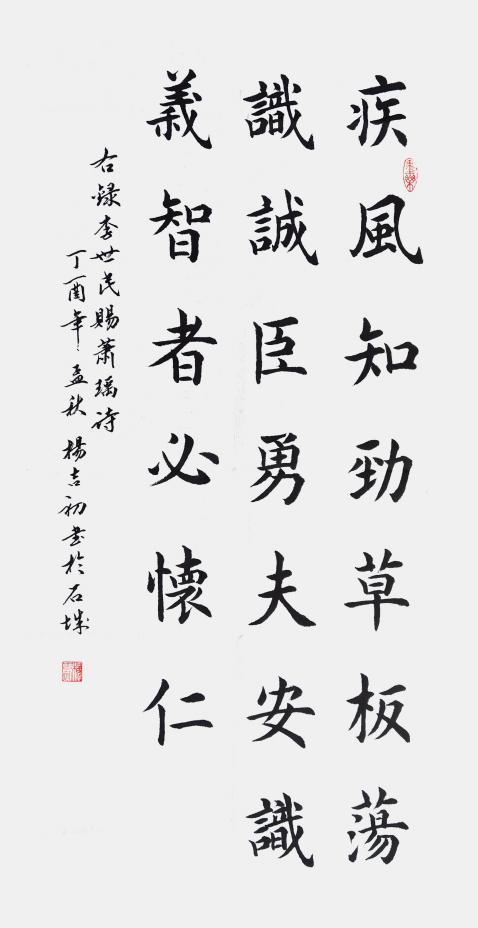 疾風知勁草板蕩
識誠臣勇夫安識
義智者必懷仁
右録李世民賜蕭瑀诗
丁酉年孟秋楊吉初书於石城